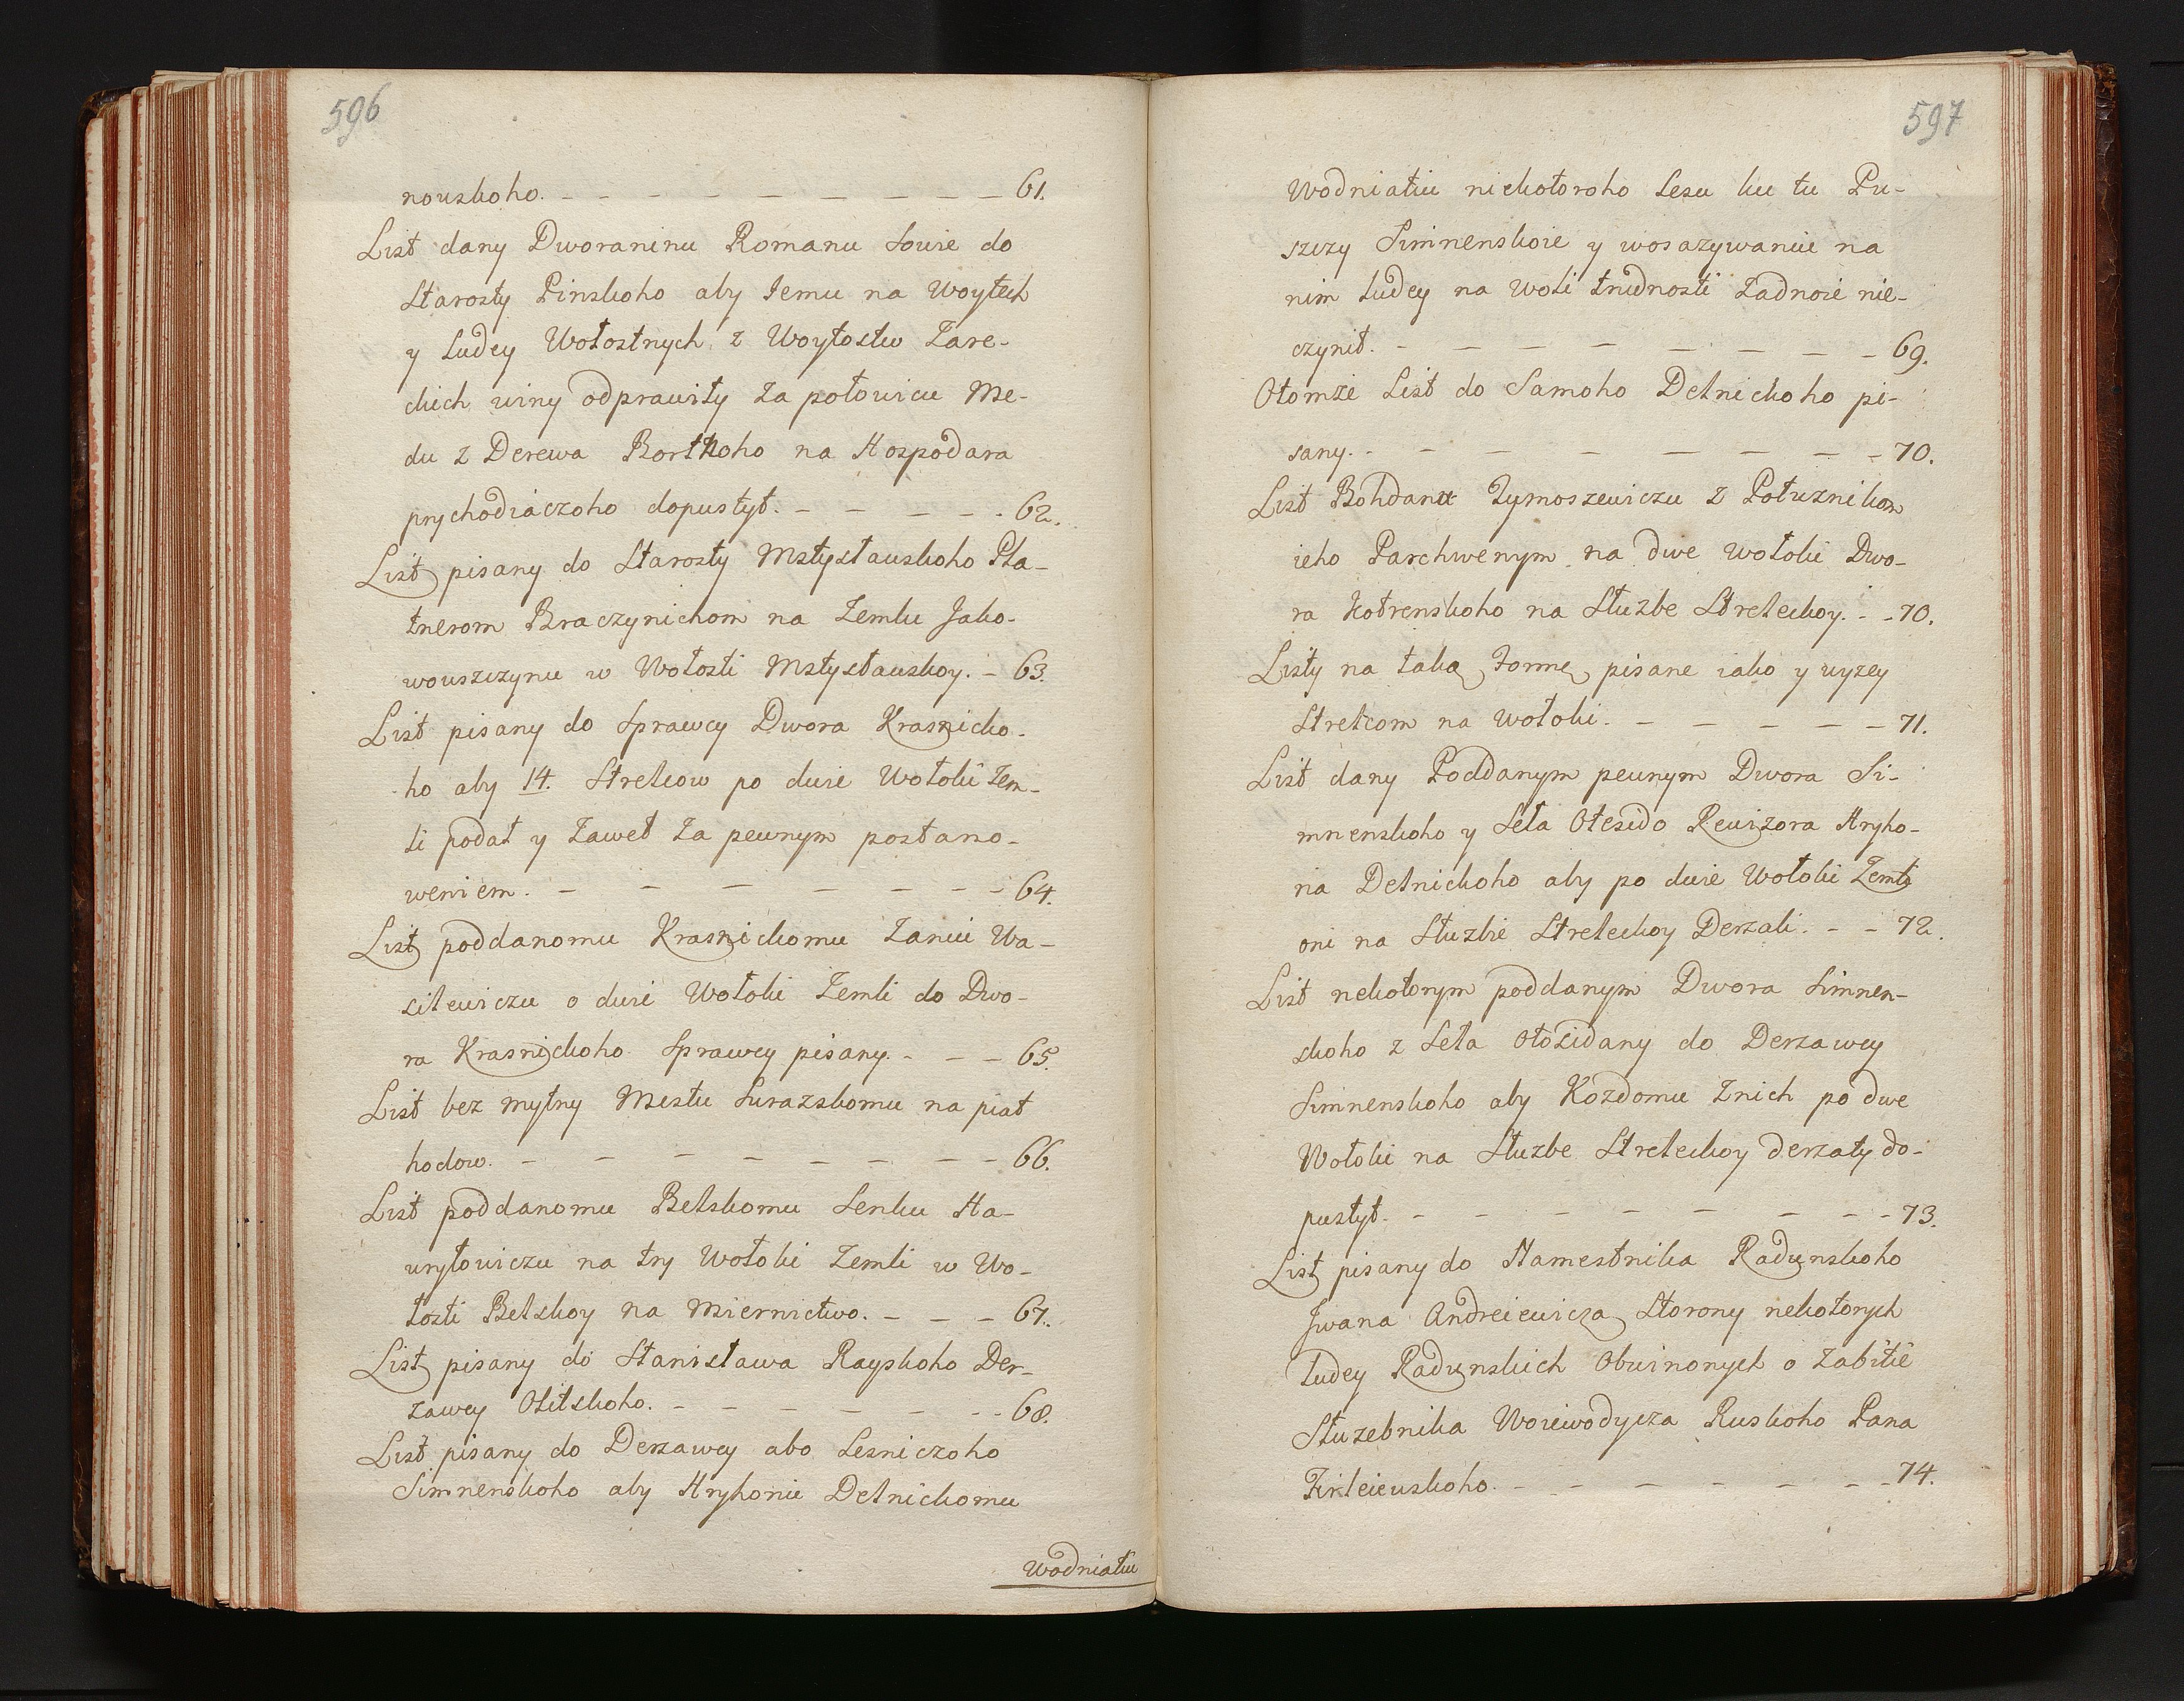 596
nouskoho. - - - - - - - - - 61.
List dany Dworaninu Romanu Sowie do
Starosty Pinskoho aby Iemu na Woytech
y Ludey Wołostnych z Woytostw Zare-
ckich winy odprawity za połowicu Me-
du z Derewa Bortnoho na Hospodara
prychodiaczoho dopustył. - - - - - 62.
List pisany do Starosty Mstysławskoho Pla-
tnerom Braczynichom na Zemlu Jako-
wouszczynu w Wołosti Mstysławskoy. - 63.
List pisany do Sprawcy Dwora Krasnicko-
ho aby 14. Strelcow po dwie Wołoki Zem-
li podał y Zaweł za pewnym postano-
weniem. - - - - - - - 64.
List poddanomu Krasnickomu Zaniu Wa-
silewiczu o dwie Wołoki Zemli do Dwo-
ra Krasnickoho Sprawcy pisany. - - - 65.
List bez mytny Mestu Surazskomu na piat
hodow. - - - - - - - - 66.
List poddanomu Belskomu Senku Ha-
wryłowiczu na try Wołoki Zemli w Wo-
łosti Belskoy na Miernictwo. - - - 67.
List pisany do Stanisława Rayskoho Der-
zawcy Olitskoho. - - - - - - - 68.
List pisany do Derzawcy abo Lesniczoho
Simnenskoho aby Hryhoniu Delnickomu
Wodniatiu
597
Wodniatiu niekotoroho Lesu ku tu Pu-
szczy Simnenskoie y wosazywaniu na
nim Ludey na Woli trudnosti Zadnoie nie-
czynił. - - - - - - - - 69.
Otomze List do Samoho Delnickoho pi-
sany. - - - - - - - - 70.
List Bohdanu Tymoszewiczu z Potuznikom
ieho Parchwenym na dwe wołoki Dwo-
ra Kotrenskoho na Słuzbe Streleckoy. - - 70.
Listy na taką Formę pisane iako y wyzey
Strelcom na wołoki. - - - - - 71.
List dany Poddanym pewnym Dwora Si-
mnenskoho y Seła Olesido Rewizora Hryho-
na Delnickoho aby po dwie Wołoki Zemli
oni na Słuzbie Streleckoy Derzali. - - 72.
List nekotorym poddanym Dwora Simnen-
skoho z Seła Ołosidany do Derzawcy
Simnenskoho aby Kozdomu Znich po dwe
Wołoki na Słuzbe Streleckoy derzaty do-
pustył. - - - - - - - - 73.
List pisany do Namestnika Radunskoho
Jwana Andreiewicza Storony nekotorych
Ludey Radunskich Obwinonych o Zabitie
Słuzebnika Woiewodycza Ruskoho Pana
Firleiewskoho. - - - - - - - 74.